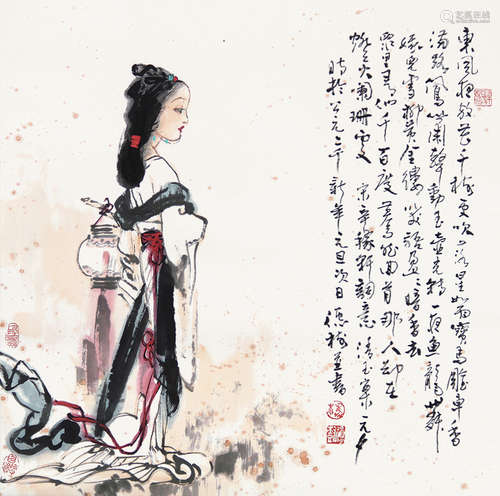 東風夜放花千樹更吹落星如雨寶馬雕車香
滿路鳳簫聲動玉壺光轉一夜魚龍舞
蛾兒雪柳黃金縷笑語盈盈暗香去
眾里尋他千百度驀然回首那人却在
燈火闌珊處 宋辛稼軒詞意 青玉案元夕
時於公元二千新年元旦次日